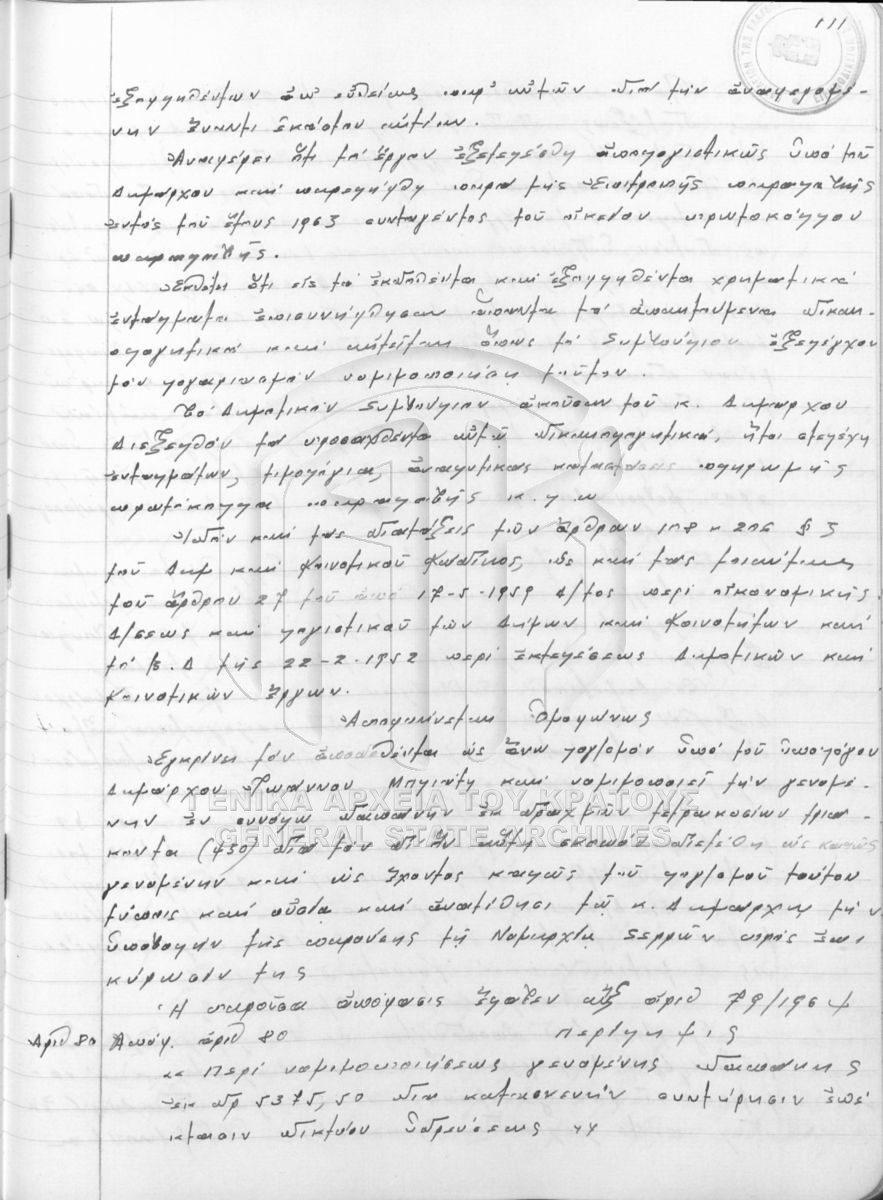 111
ἐξοφληθέντων ἀπ' εὐθείας παρ' αὐτῶν διὰ τὴν ἀναφερομέ-
νην ἔναντι ἑκάστου αἰτίαν.
Ἀναφέρει ὅτι τὸ ἔργον ἐξετελέσθη ἀπολογιστικῶς ὑπὸ τοῦ
Δημάρχου καὶ παρελήφθη παρὰ τῆς Ἐπιτροπῆς παραλαβῆς
ἐντὸς τοῦ ἔτους 1963 συνταγέντος τοῦ οἰκείου πρωτοκόλλου
παραλαβῆς.
Ἐκθέτει ὅτι εἰς τὰ ἐκδοθέντα καὶ ἐξοφληθέντα χρηματικὰ
ἐντάλματα ἐπισυνήφθησαν ἅπαντα τὰ ἀπαιτούμενα δικαι-
ολογητικὰ καὶ αἰτεῖται ὅπως τὸ Συμβούλιον ἐξελέγχον
τὸν λογαριασμὸν νομιμοποιήσῃ τοῦτον.
Τὸ Δημοτικὸν Συμβούλιον ἀκοῦσαν τοῦ κ. Δημάρχου
Διεξελθὸν τὰ προσαχθέντα αὐτῷ δικαιολογητικά, ἤτοι στελέχη
ἐνταλμάτων, τιμολόγια, ἀναλυτικὰς καταστάσεις πληρωμῆς
πρωτόκολλα παραλαβῆς κ.λ.π
Ἰδὸν καὶ τὰς διατάξεις τῶν ἄρθρων 178 κ 206 § 3
τοῦ Δημ καὶ Κοινοτικοῦ Κώδικος, ὡς καὶ τὰς τοιαύτας
τοῦ ἄρθρου 27 τοῦ ἀπὸ 17-5-1959 Δ/τος περὶ οἰκονομικῆς
Δ/σεως καὶ λογιστικοῦ τῶν Δήμων καὶ Κοινοτήτων καὶ
τὸ Β.Δ τῆς 22-2-1952 περὶ ἐκτελέσεως Δημοτικῶν καὶ
Κοινοτικῶν ἔργων.
Ἀποφαίνεται Ὁμοφώνως
Ἐγκρίνει τὸν ἀποδοθέντα ὡς ἄνω λογ/σμὸν ὑπὸ τοῦ ὑπολόγου
Δημάρχου Ἰωάννου καὶ νομιμοποιεῖ τὴν γενομέ-
νην ἐν συνόλῳ δαπάνην ἐκ δραχμῶν τετρακοσίων τριά-
κοντα (430) διὰ τὸν δι' ὃν αὕτη σκοπὸν διετέθη ὡς καλῶς
γενομένην καὶ ὡς ἔχοντος καλῶς τοῦ λογ/σμοῦ τούτου
τύποις καὶ οὐσίᾳ καὶ ἀνατίθησι τῷ κ. Δημάρχῳ τὴν
ὑποβολὴν τῆς παρούσης τῇ Νομαρχίᾳ Σερρῶν πρὸς ἐπι
κύρωσίν της
Ἡ παροῦσα ἀπόφασις ἔλαβεν αὔξ ἀριθ 79/1964
Ἀριθ 80 Ἀπόφ. ἀριθ 80 Περίληψις
«Περὶ νομιμοποιήσεως γενομένης δαπάνης
ἐκ δρ 5375,50 διὰ κατασκευὴν συντήρησιν ἐπέ
κτασιν δικτύου ὑδρεύσεως»
ΓΕΝΙΚΑ ΑΡΧΕΙΑ ΤΟΥ ΚΡΑΤΟΥΣ
GENERAL STATE ARCHIVES